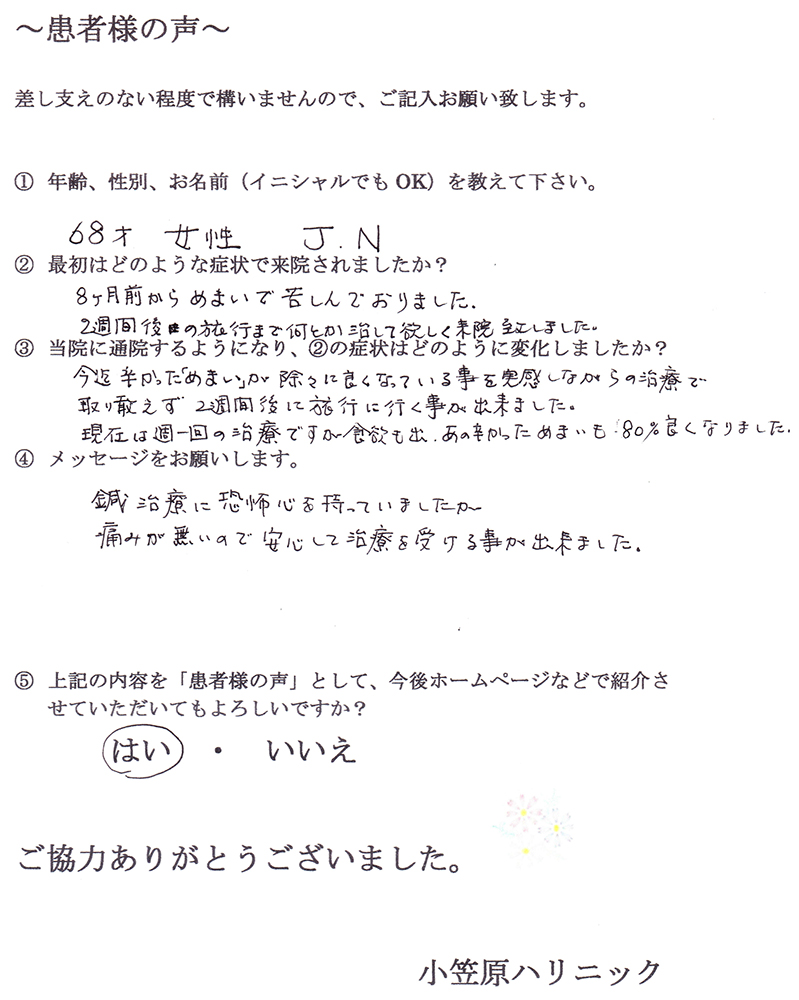 ～患者様の声～
差し支えのない程度で構いませんので、ご記入お願い致します。
① 年齢、性別、お名前（イニシャルでもOK）を教えて下さい。
68才 女性 J.N
② 最初はどのような症状で来院されましたか？
8ヶ月前からめまいで苦しんでおりました.
2週間後の旅行まで何とか治して欲しく来院致しました。
③ 当院に通院するようになり、②の症状はどのように変化しましたか？
今迄辛かった「めまい」が除々に良くなっている事を実感しながらの治療で
取り敢えず2週間後に旅行に行く事が出来ました。
現在は週一回の治療ですが食欲も出.あの辛かっためまいも80%良くなりました.
④ メッセージをお願いします。
鍼治療に恐怖心を持っていましたが
痛みが無いので安心して治療を受ける事が出来ました.
⑤ 上記の内容を「患者様の声」として、今後ホームページなどで紹介さ
せていただいてもよろしいですか？
はい ・ いいえ
ご協力ありがとうございました。
小笠原ハリニック